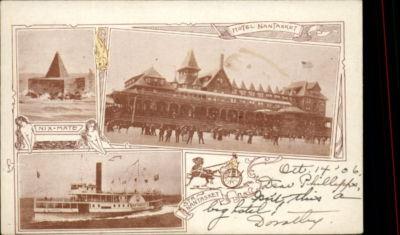 HOTEL NANTASKET
NIX-MATE
NANTASKET
Oct. 14 '06
Dear Phillipps,
Isn't this a
big hotel!
Dorothy